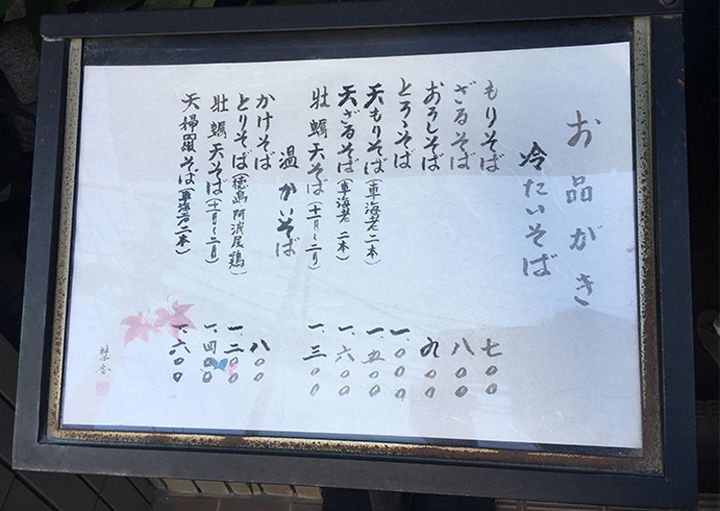 お品がき
冷たいそば
もりそば 七〇〇
ざるそば 八〇〇
おろしそば 九〇〇
とろろそば 一、〇〇〇
天もりそば(車海老二本) 一、五〇〇
天ざるそば(車海老二本) 一、六〇〇
牡蠣天そば(十一月〜二月) 一、三〇〇
温かいそば
かけそば 八〇〇
とりそば(徳島阿波尾鶏) 一、二〇〇
牡蠣天そば(十一月〜二月) 一、四〇〇
天婦羅そば(車海老二本) 一、六〇〇